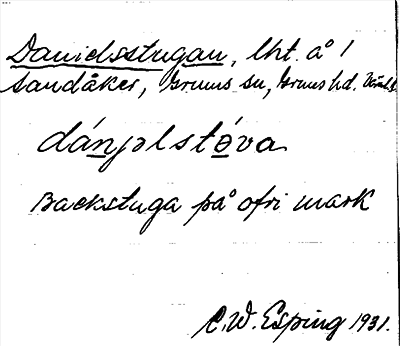 Danielsstugan, lht. å /
Sandåker, Grums sn, Grums hd.
dánjəlstóva
Backstuga på ofri mark
C. W. Esping 1931.